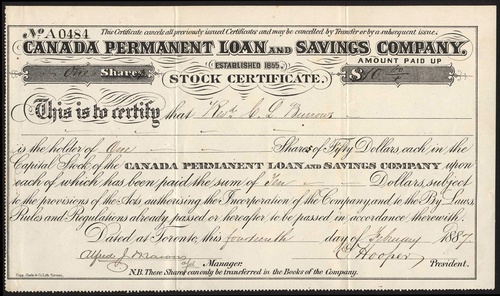 No. A0484 This Certificate cancels all previously issued Certificates and may be cancelled by Transfer or by a subsequent issue.
CANADA PERMANENT LOAN AND SAVINGS COMPANY.
ESTABLISHED 1855.
AMOUNT PAID UP
One Shares
STOCK CERTIFICATE.
$10
This is to certify that
is the holder of One Shares of Fifty Dollars each in the
Capital Stock of the CANADA PERMANENT LOAN AND SAVINGS COMPANY upon
each of which has been paid the sum of Ten Dollars, subject
to the provisions of the Acts authorising the Incorporation of the Company, and to the By Laws,
Rules and Regulations already passed or hereafter to be passed in accordance therewith.
Dated at Toronto, this fourteenth day of February 1887.
Alfred J.
Hooper
Manager. President.
N.B. These Shares can only be transferred in the Books of the Company.